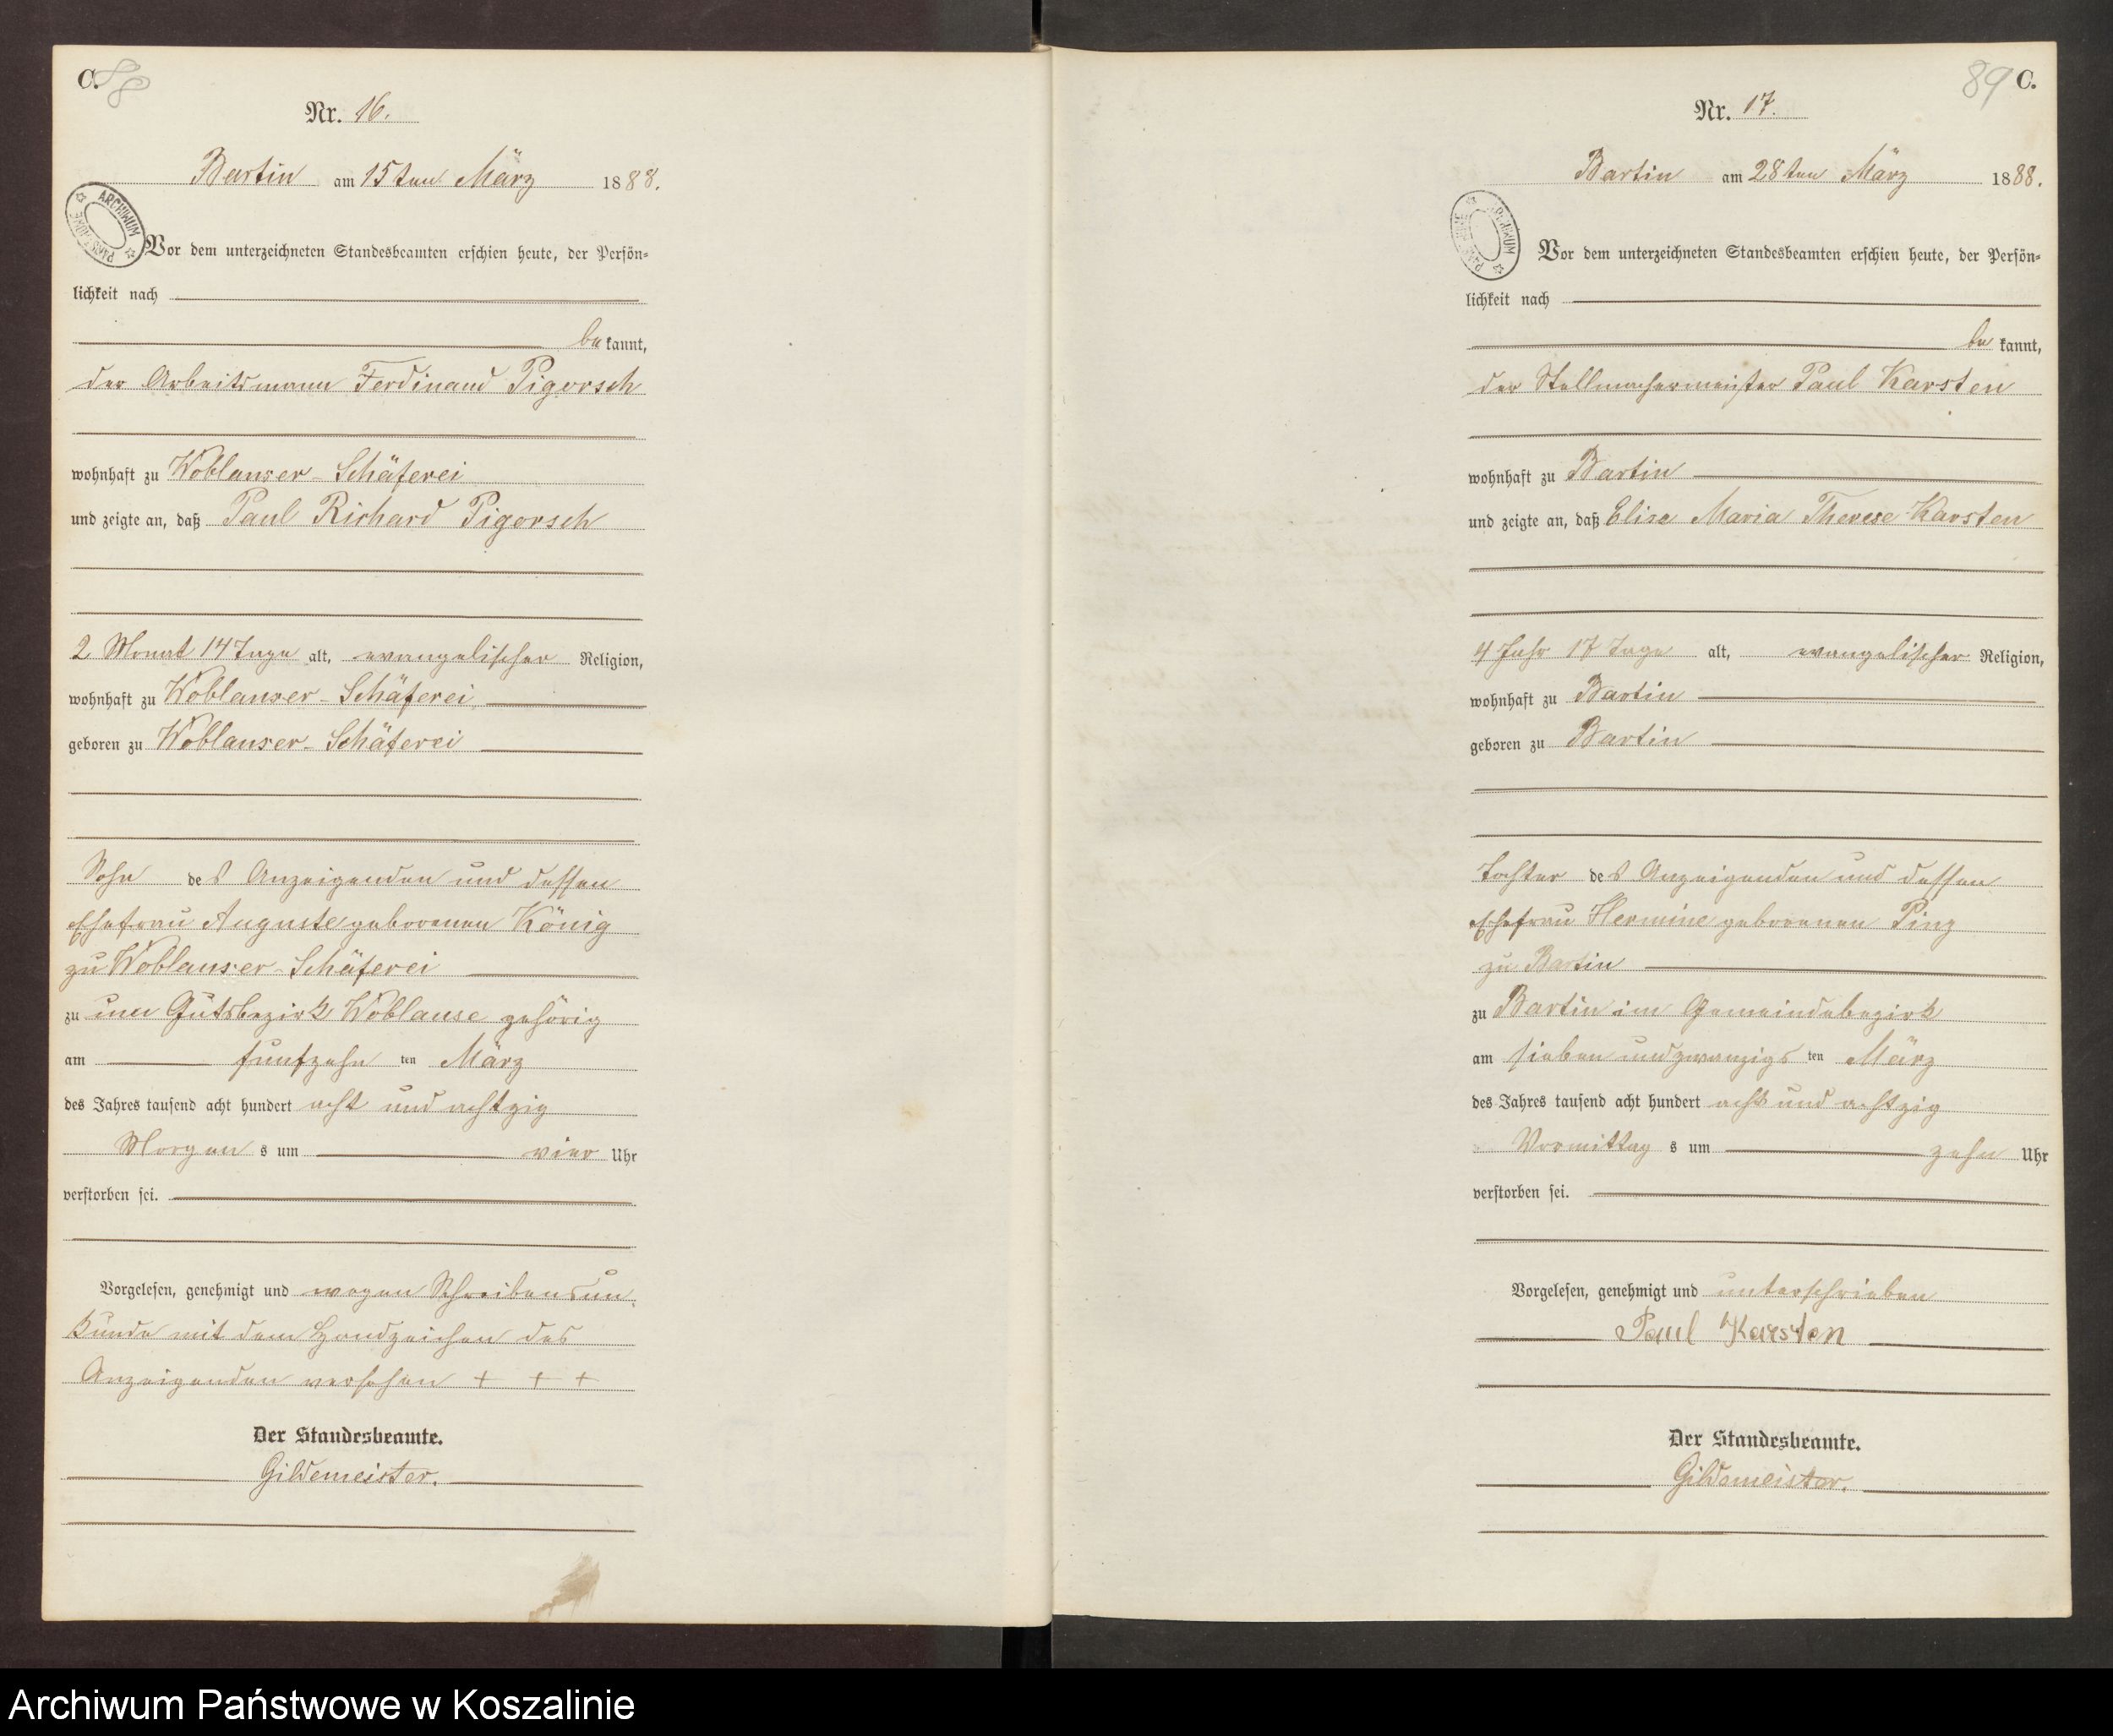 C. 88
Nr. 16.
Bartin am 15ten März 1888.
ARCHIWUM PAŃSTWOWE
Vor dem unterzeichneten Standesbeamten erschien heute, der Persön-
lichkeit nach
bekannt,
der Arbeitsmann Ferdinand Pigorsch
wohnhaft zu Woblanser-Schäferei
und zeigte an, daß Paul Richard Pigorsch
2 Monat 14 Tage alt, evangelischer Religion,
wohnhaft zu Woblanser-Schäferei
geboren zu Woblanser-Schäferei
Sohn des Anzeigenden und dessen
Ehefrau Auguste geborenen König
zu Woblanser-Schäferei
zu um Gutsbezirk Woblanse gehörig
am fünfzehn ten März
des Jahres tausend acht hundert acht und achtzig
Morgens um vier Uhr
verstorben sei.
Vorgelesen, genehmigt und wegen Schreibensun-
kunde mit dem Handzeichen des
Anzeigenden versehen + + +
Der Standesbeamte.
Gildemeister.
89 C.
Nr. 17.
Bartin am 28ten März 1888.
ARCHIWUM PAŃSTWOWE
Vor dem unterzeichneten Standesbeamten erschien heute, der Persön-
lichkeit nach
bekannt,
der Stellmachermeister Paul Karsten
wohnhaft zu Bartin
und zeigte an, daß Elise Maria Therese Karsten
4 Jahr 17 Tage alt, evangelischer Religion,
wohnhaft zu Bartin
geboren zu Bartin
Tochter des Anzeigenden und dessen
Ehefrau Hermine geborenen Pinz
zu Bartin
zu Bartin im Gemeindebezirk
am sieben und zwanzigs ten März
des Jahres tausend acht hundert acht und achtzig
Vormittags um zehn Uhr
verstorben sei.
Vorgelesen, genehmigt und unterschrieben
Paul Karsten
Der Standesbeamte.
Gildemeister.
Archiwum Państwowe w Koszalinie